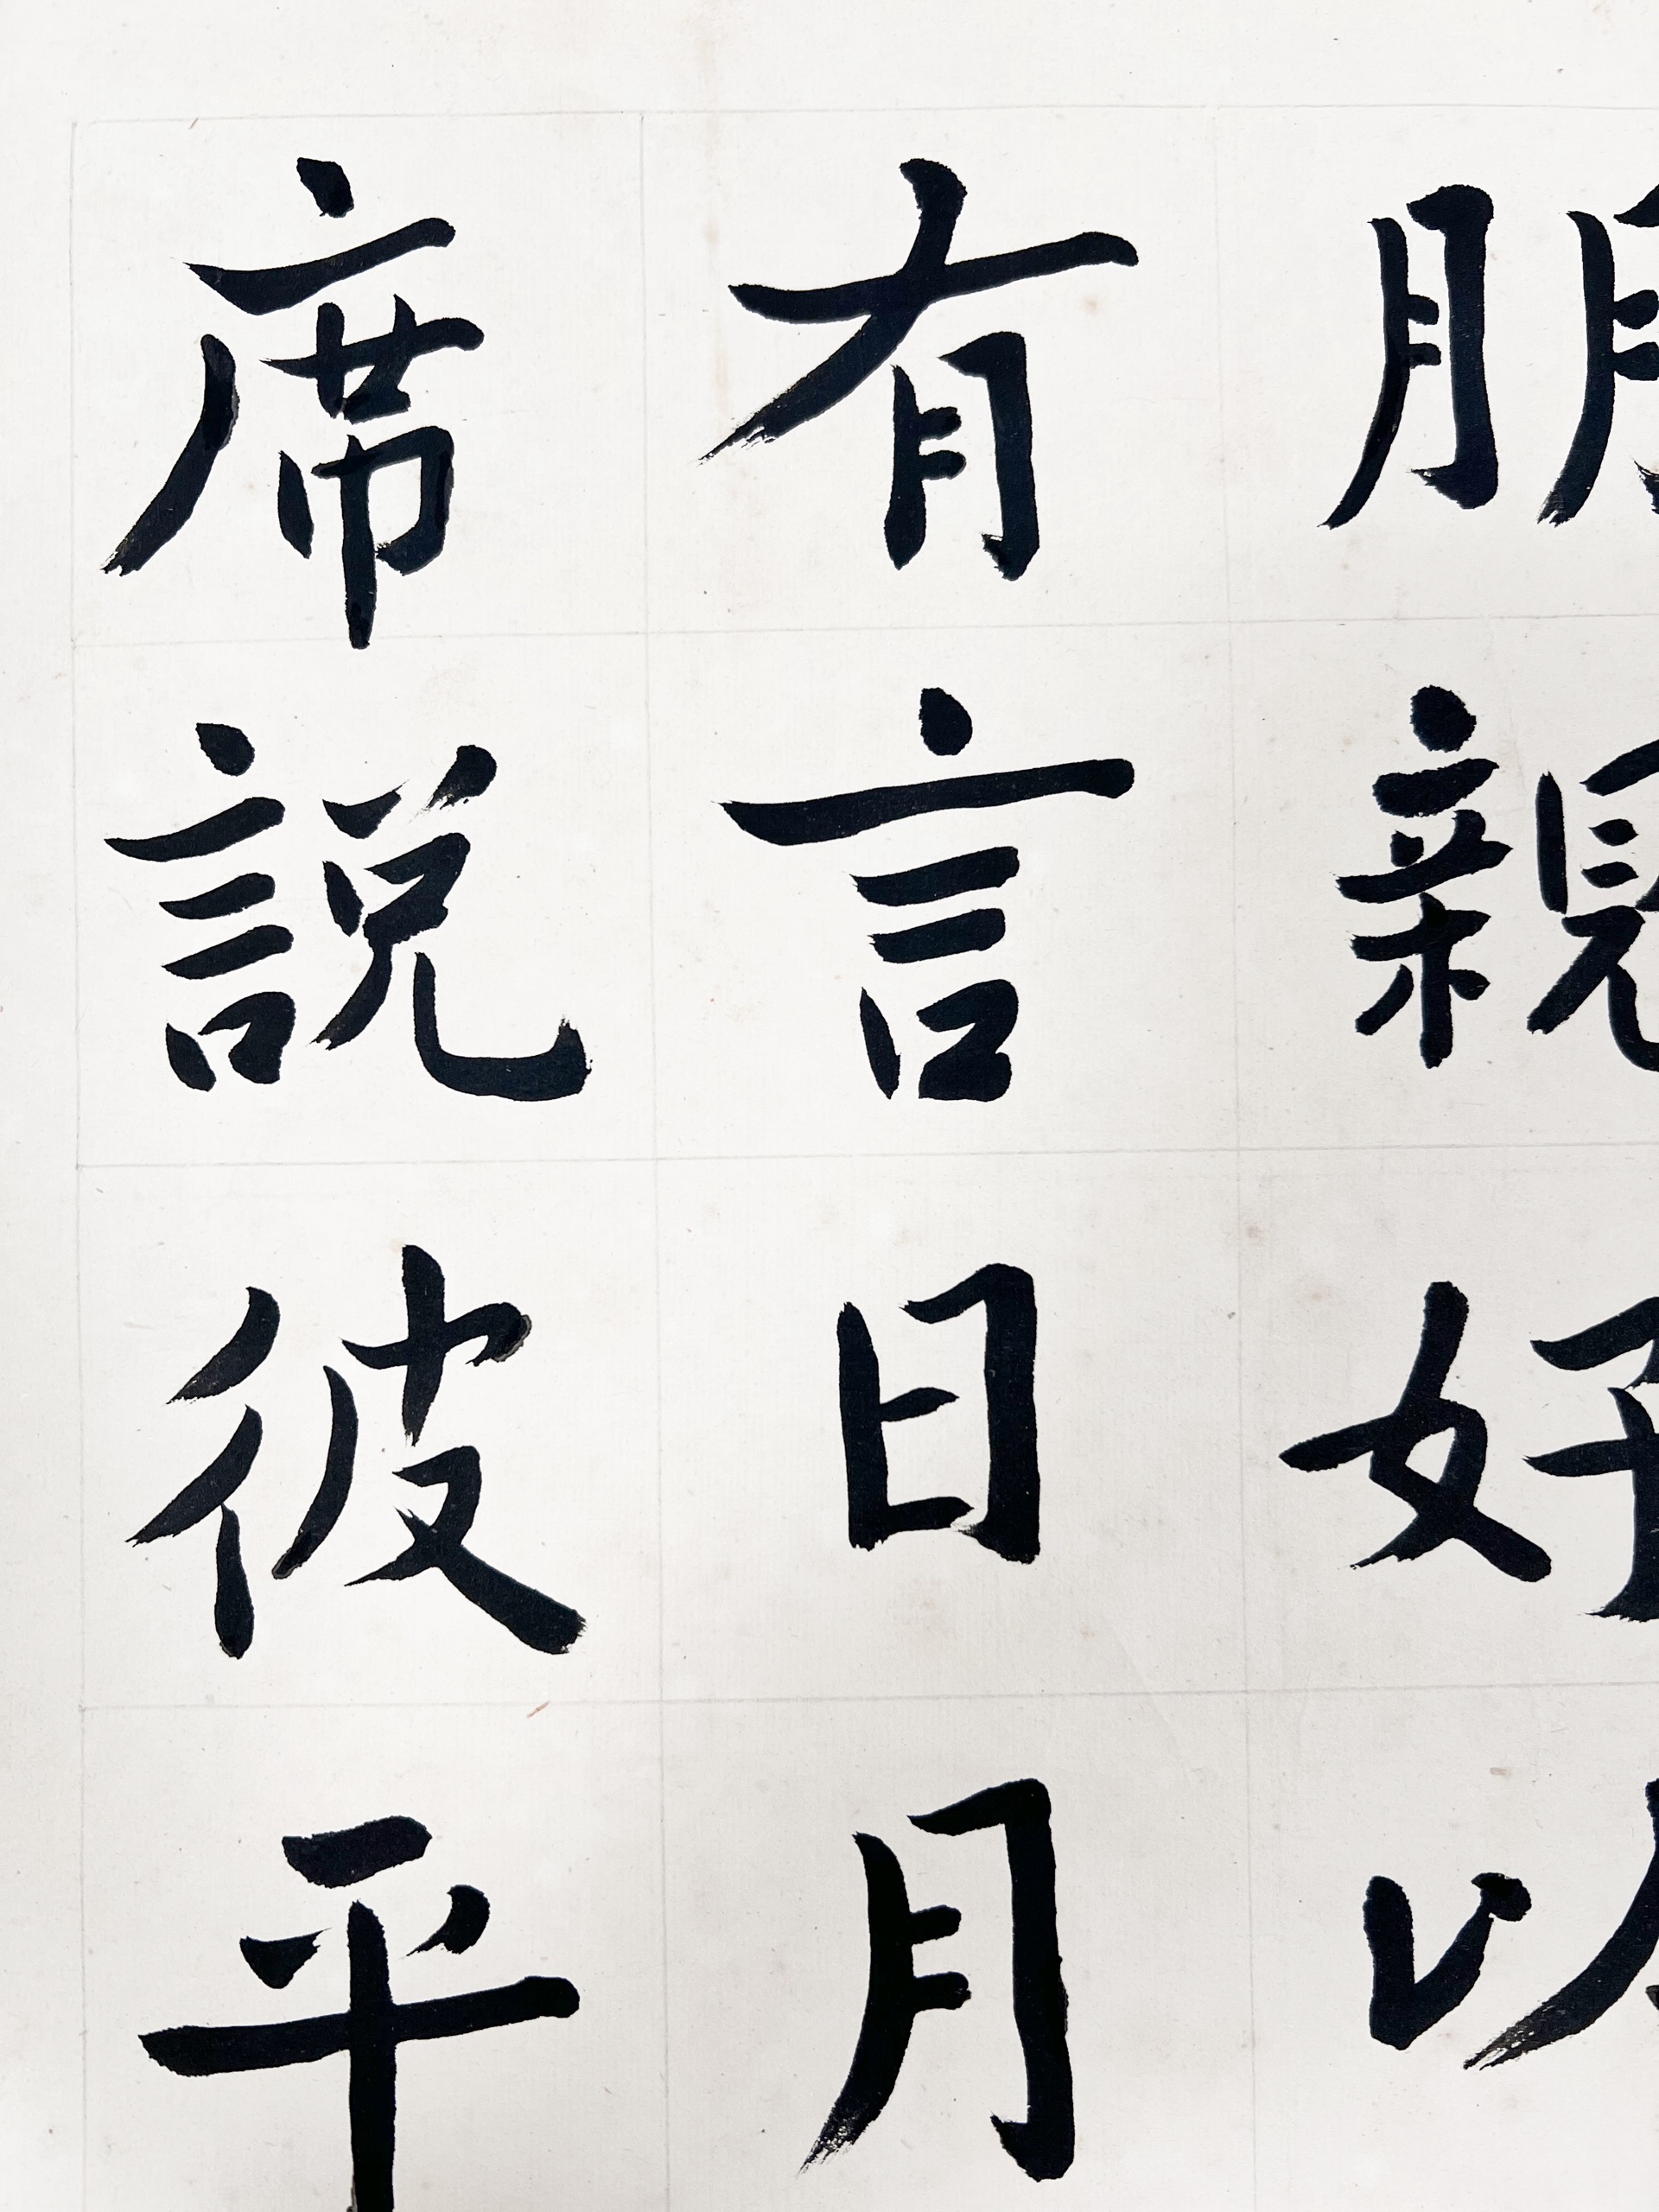 朋親好以
有言日月
席説彼平